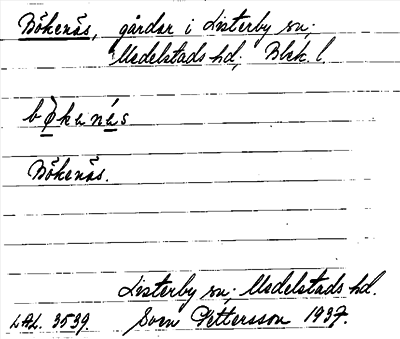 Bökenäs, gårdar i Listerby sn;
Medelstads hd; Blek. l.
bø̀kenä́s
Bökenäs.
Listerby sn; Medelstads hd.
LAL. 3539. Sven Pettersson 1937.